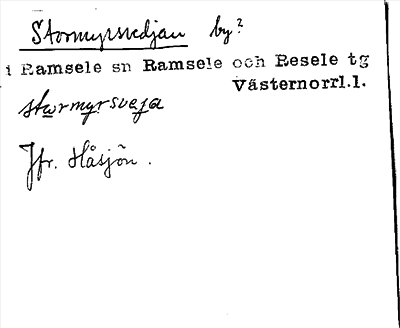 Stormyrsvedjan by?
i Ramsele sn Ramsele och Resele tg
Västernorrl.l.
sturmyrsveja
Jfr. Håsjön.